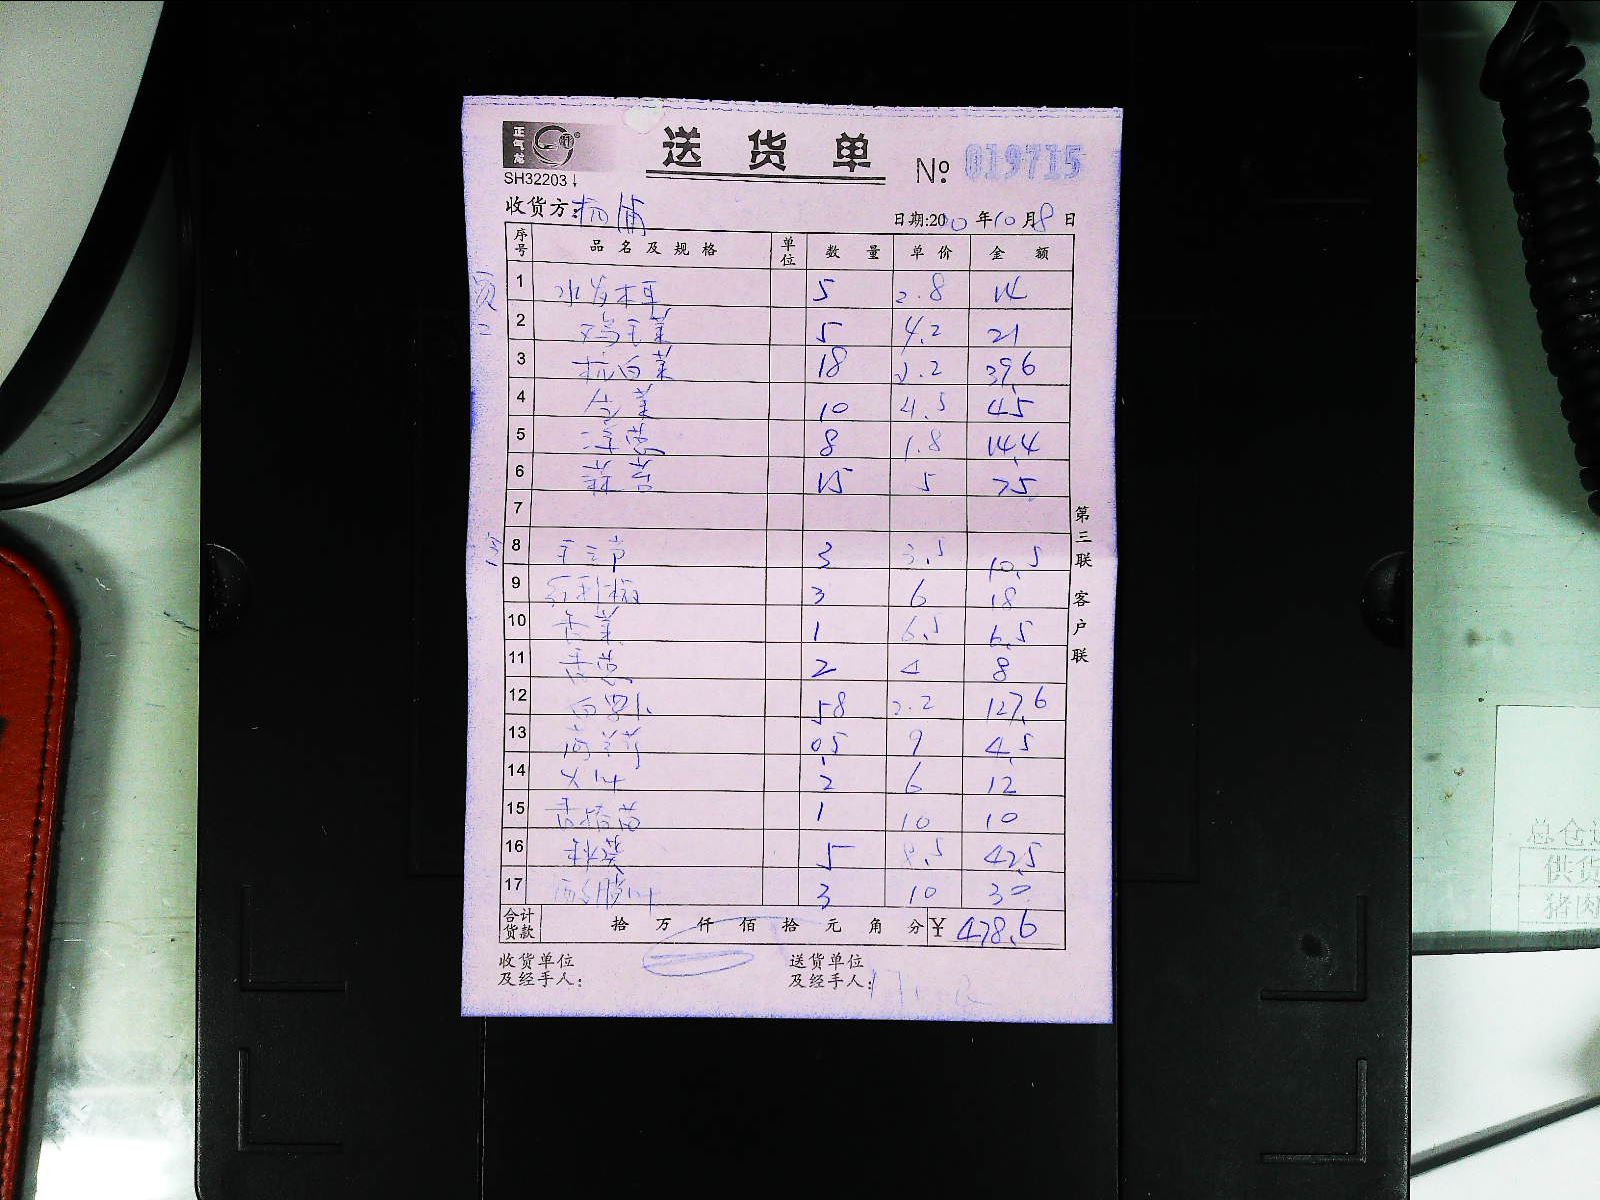 正气龙
SH32203↓
送货单 № 019715
收货方: 杨浦 日期:20 年10月8日
序号 品名及规格 单位 数量 单价 金额
1 水发木耳 5 2.8 14
2 鸡毛菜 5 4.2 21
3 杭白菜 18 2.2 39.6
4 10 4.5 45
5 8 1.8 14.4
6 15 5 75
7
8 3 3.5 10.5
9 3 6 18
10 香菜 1 6.5 6.5
11 香葱 2 4 8
12 白萝卜 58 2.2 127.6
13 荷兰芹 0.5 9 4.5
14 2 6 12
15 1 10 10
16 5 8.5 42.5
17 3 10 30
合计货款 拾 万 仟 佰 拾 元 角 分 ¥ 478.6
收货单位及经手人: 送货单位及经手人:
第三联 客户联
总仓
供货
猪肉